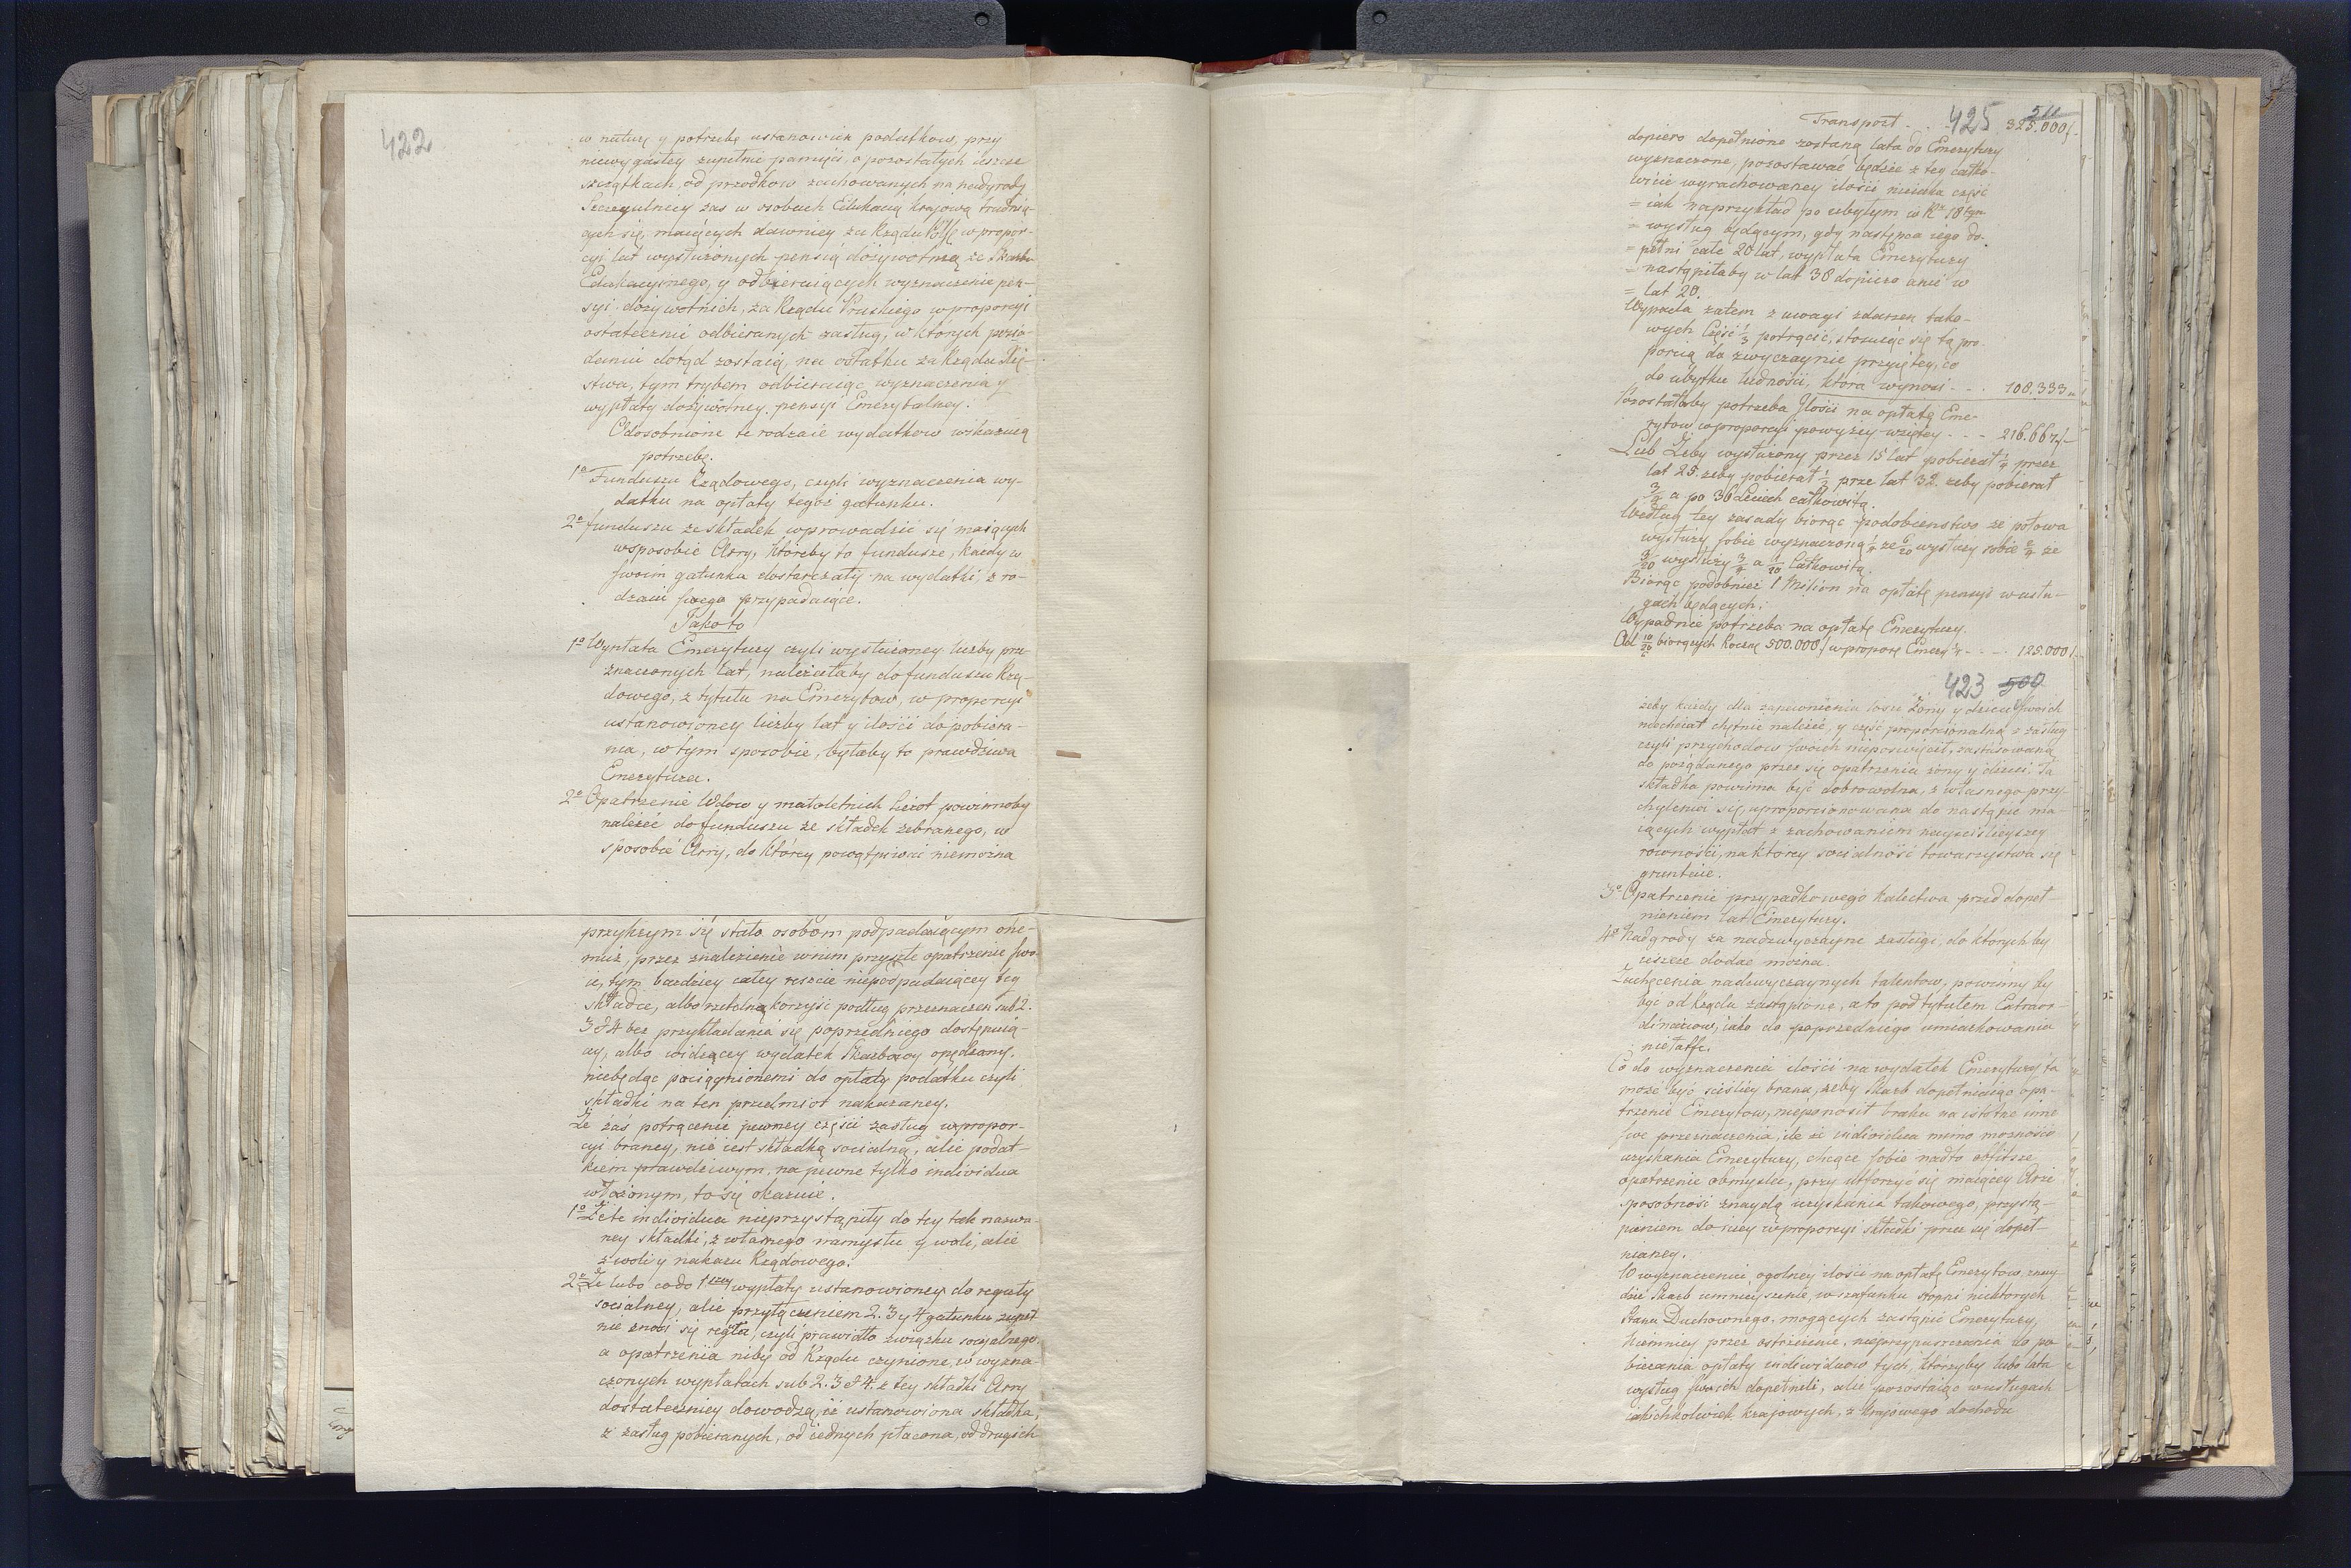 422
w naturę y potrzebę ustanowień podatkow, przy
niewygasłey zupełnie pamięci, o pozostałych ieszcze
szczątkach, od przodkow zachowanych na nadgrody
Szczegulniey zas w osobach Edukacyą kraiową trudnią-
cych się, maiących dawniey za Rządu Pols. w propor-
cyi lat wysłużonych pensią dożywotnią ze Skarbu
Edukacyinego, y odbieraiących wyznaczenie pen-
syi dożywotnich, za Rządu Pruskiego w proporcyi
ostatecznie odbieranych zasług, w których posia-
daniu dotąd zostaią, na ostatku za Rządu Xię-
stwa, tym trybem odbieraiąc wyznaczenia y
wypłaty dożywotney pensyi Emerytalney.
Odosobnione te rodzaie wydatkow wskazuią
potrzebę.
1o Funduszu Rządowego, czyli wyznaczenia wy-
datku na opłaty tegoż gatunku.
2o funduszu ze składek wprowadzić się maiących
w sposobie Arry, któreby to fundusze, każdy w
swoim gatunku dostarczały na wydatki, z ro-
dzaiu swego przypadaiące.
Jako to
1o Wypłata Emerytury czyli wysłużoney liczby prze-
znaczonych lat, należałaby do funduszu Rzą-
dowego, z tytułu na Emerytow, w proporcyi
ustanowioney liczby lat y ilości do pobiera-
nia, w tym sposobie, byłaby to prawdziwa
Emerytura.
2o Opatrzenie Wdow y małoletnich Sierot powinnoby
należeć do funduszu ze składek zebranego, w
sposobie Arry, do którey powątpiwać niemożna
przykrzym się stało osobom podpadaiącym one-
muż, przez znalezienie w nim przyszłe opatrzenie swo-
ie, tym bardziey całey reszcie niepodpadaiącey tey
składce, albo rzetelną korzyść podług przeznaczeń sub 2.
3 & 4 bez przykładania się poprzedniego dostępuią-
cy, albo widzącey wydatek Skarbowy opędzany,
niebędąc pociągnionemi do opłaty podatku czyli
składki na ten przedmiot nakazaney.
Że zaś potrącenie pewney części zasług w propor-
cyi braney, nie iest składką socialną, ale podat-
kiem prawdziwym, na pewne tylko individua
włożonym, to się okazuie.
1o Że te individua nieprzystąpiły do tey tak nazwa-
ney składki, z własnego namysłu y woli, ale
z woli y nakazu Rządowego.
2o Że lubo co do 1szey wypłaty ustanowioney do reguły
socialney, ale przyłączeniem 2. 3 y 4 gatunku zupeł-
nie znosi się reguła, czyli prawidło związku socyalnego.
a opatrzenia niby od Rządu czynione, w wyzna-
czonych wypłatach sub 2. 3 & 4. z tey składki Arry
dostateczniey dowodzą, iż ustanowiona składka,
z zasług pobieranych, od iednych płacona, od drugich
425 511
Transport . . 325.000 f.
dopiero dopełnione zostaną lata do Emerytury
wyznaczone, pozostawać będzie z tey całko-
wicie wyrachowaney ilości nieiaka część
= iak naprzykład po ubyłym w Rr. 18tym
= wysług będącym, gdy następca iego do-
= pełni całe 20 lat, wypłata Emerytury
= nastąpiłaby w lat 38 dopiero anie w
= lat 20.
Wypada zatem z uwagi zdarzeń tako-
wych Część 1/3 potrącić, stosuiąc się tą pro-
porcią do zwyczaynie przyiętey, co
do ubytku ludności, która wynosi - - . 108.333
Pozostałaby potrzeba Ilości na opłatę Eme-
rytow w proporcyi powyżey wziętey - - - 216.667 f.
Lub Żeby wysłużony przez 15 lat pobierał 1/4 przez
lat 25. żeby pobierał 1/2 prze lat 32. żeby pobierał
3/4 a po 36 leciech całkowitą.
Według tey zasady biorąc podobieństwo że połowa
wysłuży sobie wyznaczoną 1/4 że 6/20 wysłuży sobie 2/4 że
3/20 wysłuży 3/4 a 1/20 Całkowitą.
Biorąc podobnież 1 Milion na opłatę pensyi w usłu-
gach będących.
Wypadnie potrzeba na opłatę Emerytury.
Od 10/20 biorących Rocznie 500.000 f w propor. Emery. 1/4 - - - 125.000 f.
423 500
żeby każdy dla zapewnienia losu Żony y dzieci swoich
niechciał chętnie należeć, y część proporcionalną z zasług
czyli przychodow swoich nieposwięcił, zastosowaną
do pożądanego przez się opatrzenia żony y dzieci. Ta
składka powinna być dobrowolna, z własnego przy-
chylenia się, uproporcionowana do nastąpić ma-
iących wypłat z zachowaniem nayściśleyszey
rowności, na którey socialność towarzystwa się
gruntuie.
3o Opatrzenie przypadkowego kalectwa przed dopeł-
nieniem lat Emerytury.
4o Nadgrody za nadzwyczayne zasługi, do których by
ieszcze dodać można.
Zachęcenia nadzwyczaynych talentow, powinny by
być od Rządu zastąpione, a to pod tytułem Extraor-
dinariow, iako do poprzedniego umiarkowania
niełatfe.
Co do wyznaczenia ilości na wydatek Emerytury ta
może być ściśley brana, żeby Skarb dopełniaiąc opa-
trzenie Emerytow, nieponosił braku na istotne inne
swe przeznaczenia, ile że individua mimo możności
uzyskania Emerytury, chcące sobie nadto obfitsze
opatrzenie obmyslić, przy utforzyć się maiącey Arze
sposobność znaydą uzyskania takowego, przystą-
pieniem do niey w proporcyi składki przez się dopeł-
nianey.
W wyznaczeniu ogolney ilości na opłatę Emerytow, znay-
dzie Skarb umnieyszenie, w szafunku stopni niektórych
Stanu Duchownego, mogących zastąpić Emeryturę,
Niemniey przez ostrzeżenie, nieprzypuszczania do po-
bierania opłaty individuow tych, którzyby lubo lata
wysług swoich dopełnili, ale pozostaiąc w usługach
iakichkolwiek kraiowych, z kraiowego dochodu